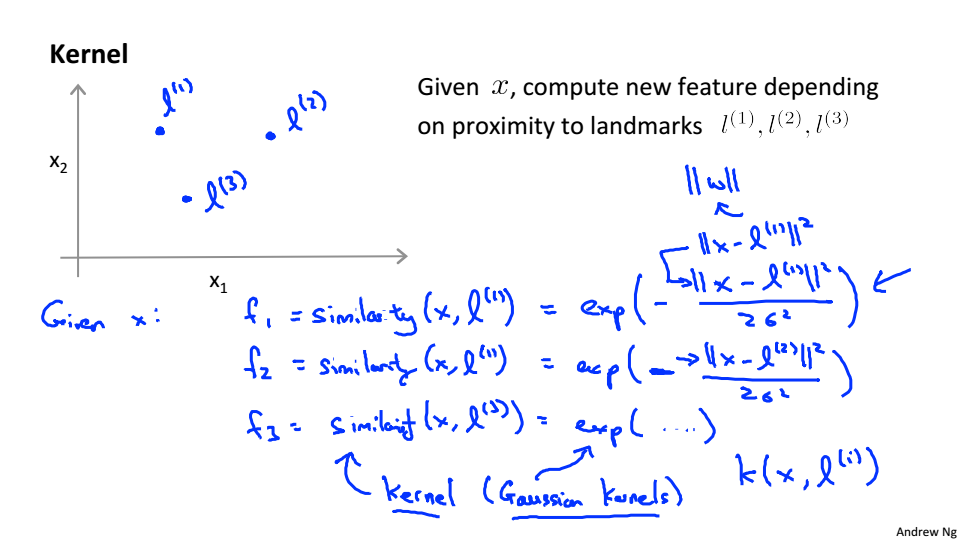 Kernel
l^(1)
l^(2)
l^(3)
x₂
x₁
Given x, compute new feature depending
on proximity to landmarks l^(1), l^(2), l^(3)
||w||
||x - l^(1)||²
Given x: f₁ = similarity(x, l^(1)) = exp(- ||x - l^(1)||² / 2σ²)
f₂ = similarity(x, l^(1)) = exp(- ||x - l^(2)||² / 2σ²)
f₃ = similarity(x, l^(3)) = exp( ....)
kernel (Gaussian kernels)
k(x, l^(i))
Andrew Ng